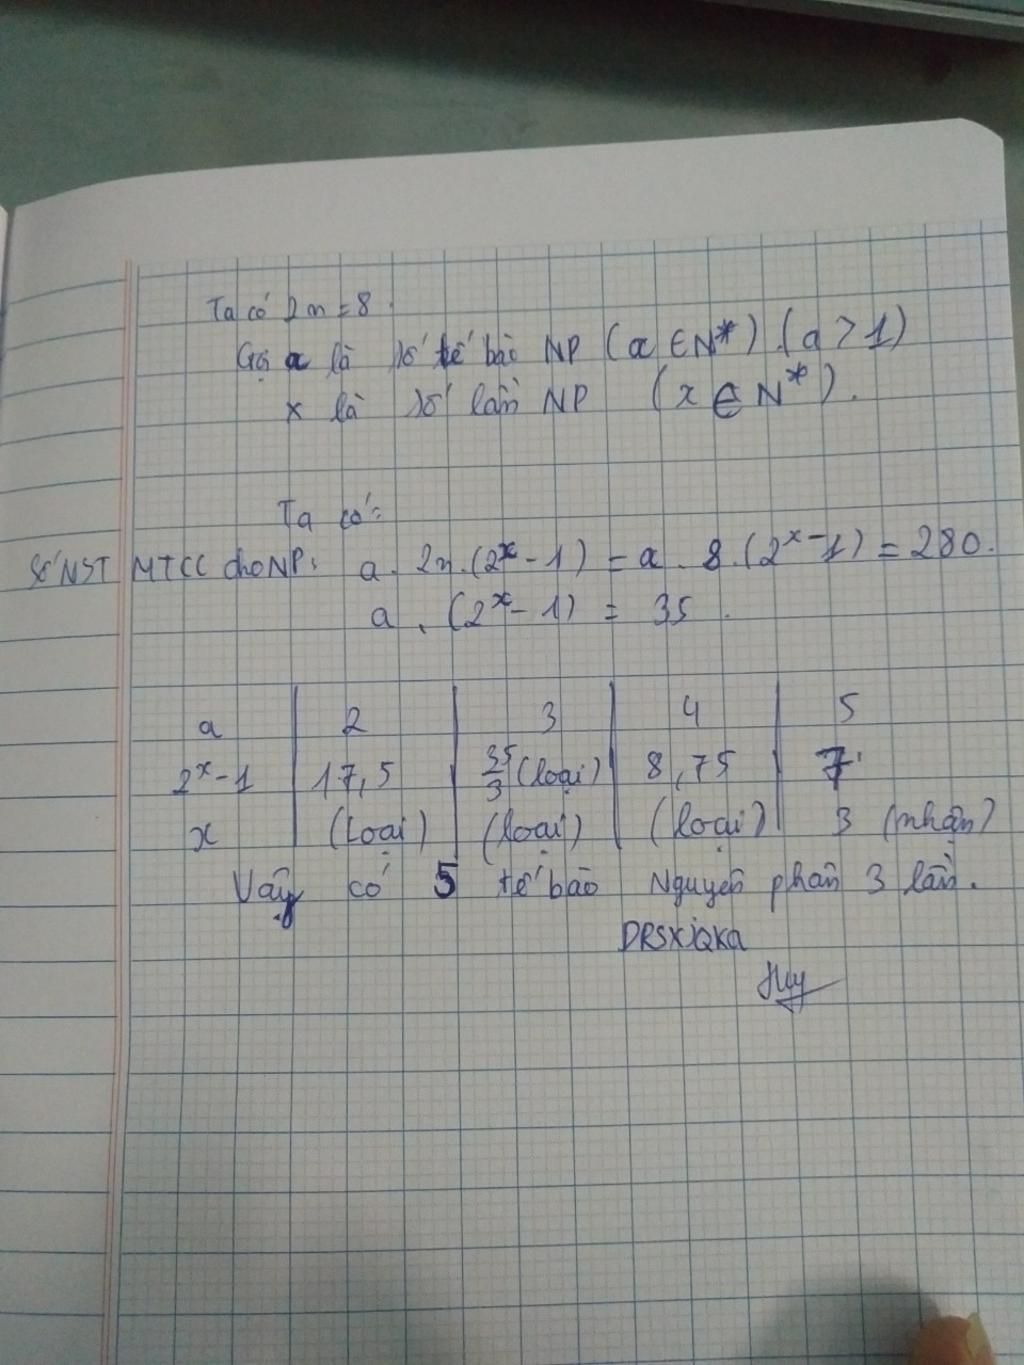 Ta có 2n = 8.
Gọi a là số tế bào NP (a ∈ N*) (a > 1)
x là số lần NP (x ∈ N*).
Ta có:
Số NST MTCC cho NP: a. 2n. (2^x - 1) = a. 8. (2^x - 1) = 280.
a. (2^x - 1) = 35.
a | 2 | 3 | 4 | 5
2^x - 1 | 17,5 | 35/3 (loại) | 8,75 | 7
x | (loại) | (loại) | (loại) | 3 (nhận)
Vậy có 5 tế bào Nguyên phân 3 lần.
DRSXiQKa
Huy